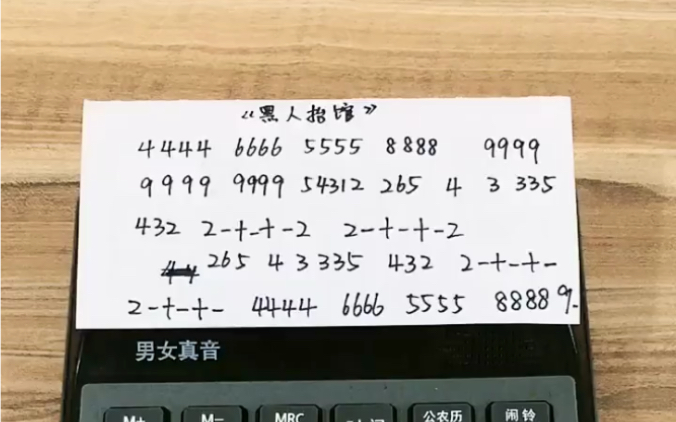 《黑人抬馆》
4444 6666 5555 8888 9999
9999 9999 54312 265 4 3 335
432 2-+-+-2 2-+-+-2
265 4 3 335 432 2-+-+-
2-+-+- 4444 6666 5555 8888 9-
男女真音
M+ M- MRC 公农历 闹铃